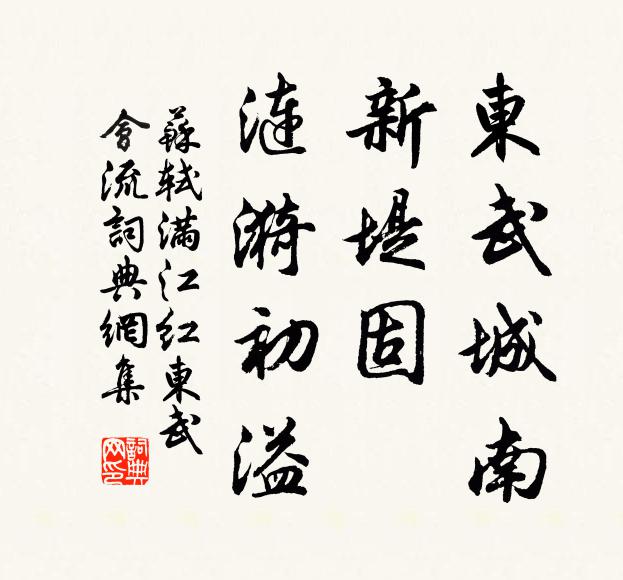 東武城南
新堤固
漣漪初溢
蘇軾滿江紅東武
會流詞典網集
詞典网印